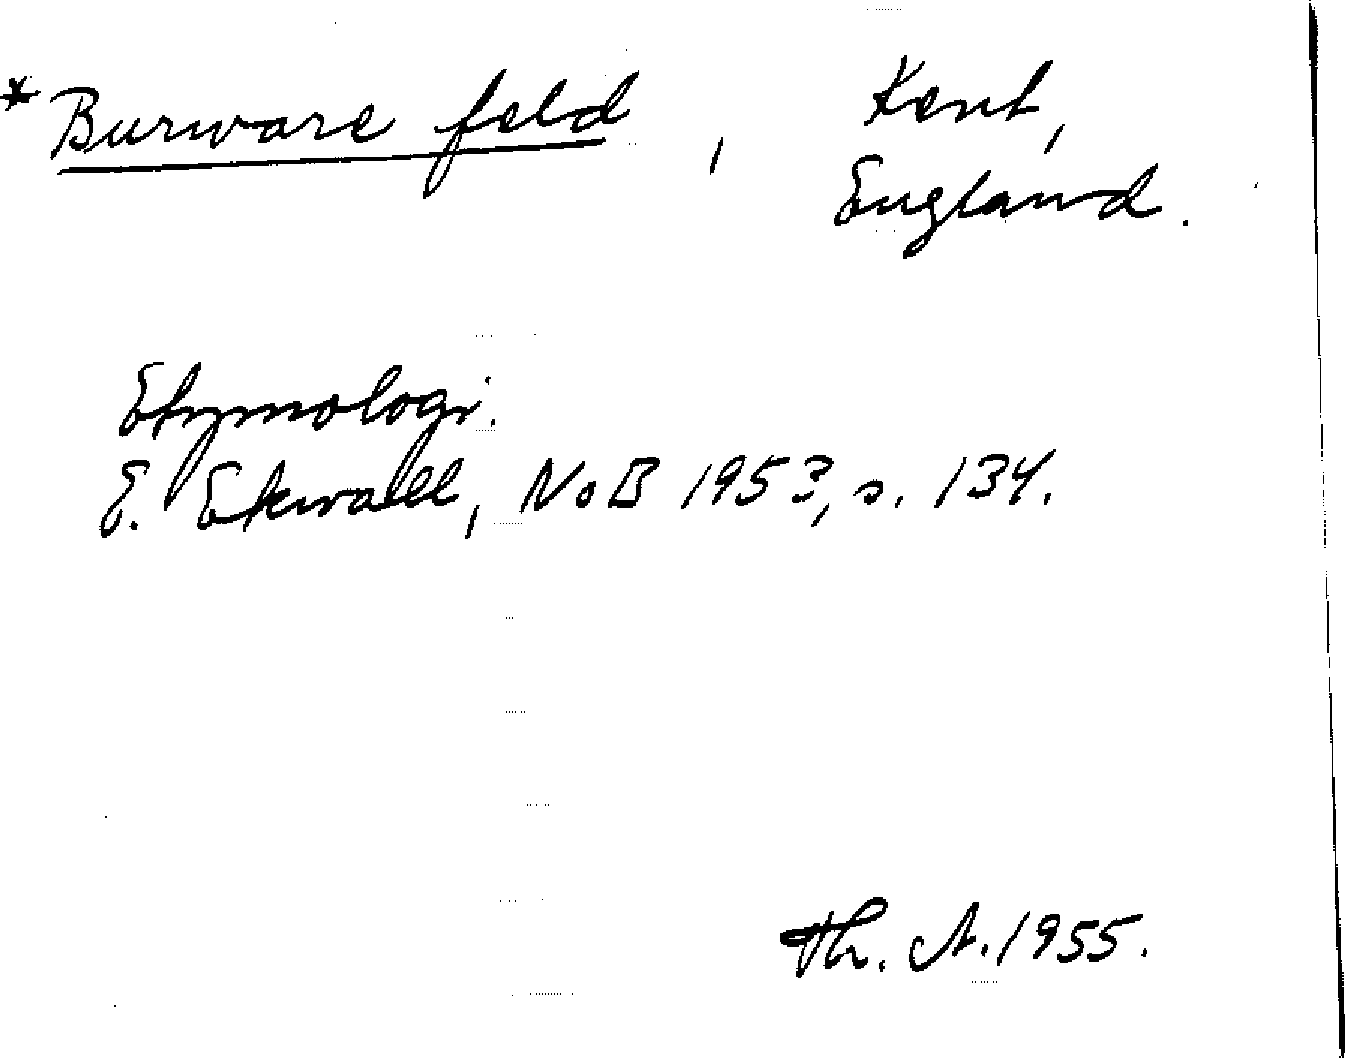 *Burware feld, Kent,
England.
Etymologi.
E. Ekwall, NoB 1953, s. 134.
Th. A. 1955.